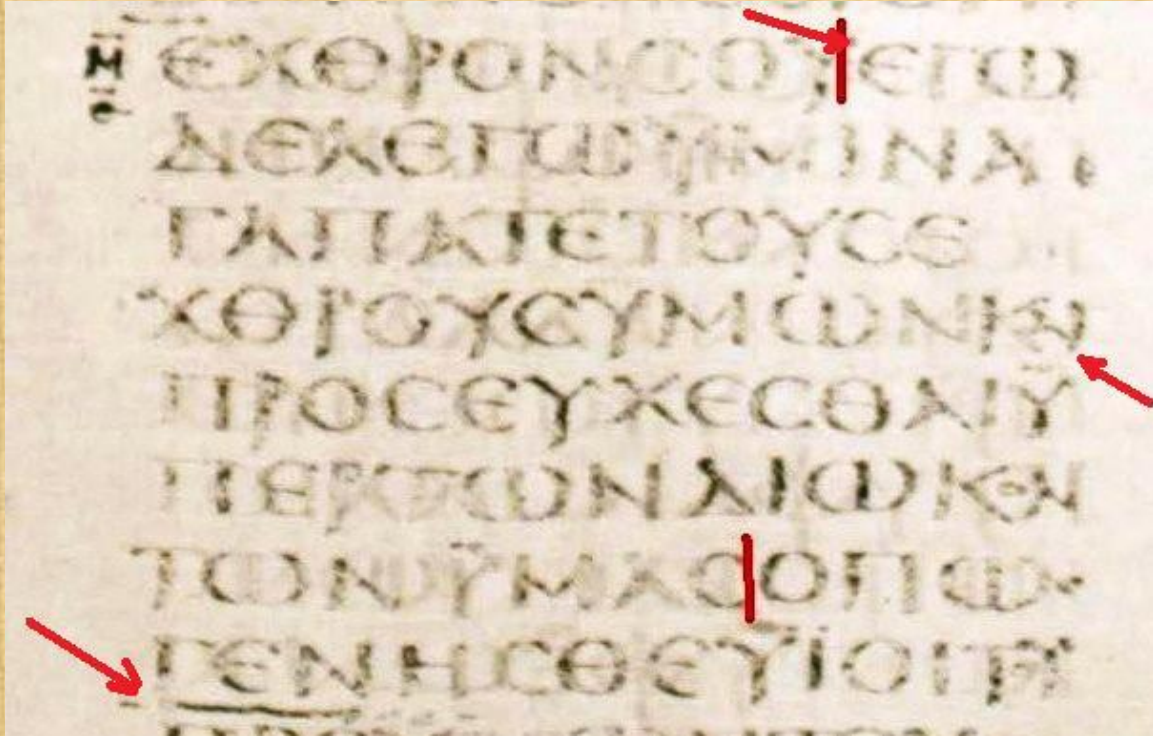 Μ ΕΧΘΡΟΝϹΟΥΕΓΩ
Ε
ΔΕΛΕΓΩΫΜΙΝΑ
ΓΑΠΑΤΕΤΟΥϹΕ
ΧΘΡΟΥϹΥΜΩΝΚΑΙ
ΠΡΟϹΕΥΧΕϹΘΑΙΫ
ΠΕΡΤΩΝΔΙΩΚΟΝ
ΤΩΝΫΜΑϹΟΠΩϹ
ΓΕΝΗϹΘΕΥΪΟΙΠΡ